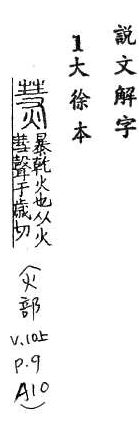 說文解字
1大徐本
熭
暴乾火也从火
彗聲于歲切
(火部
v.10上
p.9
A10)